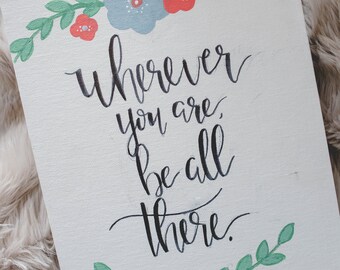 wherever
you are,
be all
there.